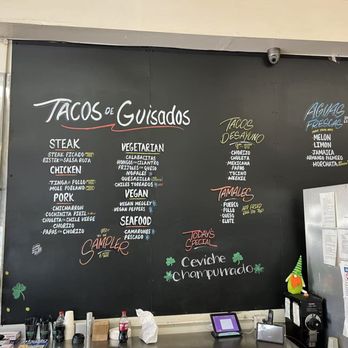 TACOS DE GUISADOS
STEAK
STEAK PICADO
BISTEK EN SALSA ROJA
CHICKEN
TINGA DE POLLO
MOLE POBLANO
PORK
CHICHARRON
COCHINITA PIBIL
CHULETA EN CHILE VERDE
CHORIZO
PAPAS CON CHORIZO
VEGETARIAN
CALABACITAS
HONGOS CON CILANTRO
FRIJOLES CON QUESO
NOPALES
QUESADILLA
CHILES TOREADOS
VEGAN
VEGAN MEDLEY
VEGAN PEPPERS
SEAFOOD
CAMARONES
PESCADO
SAMPLER
TACOS DESAYUNO
CHORIZO
CHULETA
MEXICANA
PAPAS
TOCINO
WEENIE
TAMALES
PUERCO
POLLO
QUESO
ELOTE
TODAY'S
SPECIAL
Ceviche
Champurrado
AGUAS
FRESCAS
MELON
LIMON
JAMAICA
ARMANDO PALMERO
HORCHATA